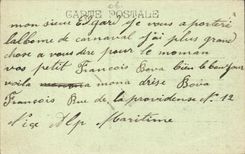 CARTE POSTALE
mon sieur Edgar Je vous a porteré
l'albome de carnaval j'ai plus grand
chose a vous dere pour le moman
vos petit François Bova bien le bonjour
voila mona drèse Bova
François Rue de la providense N. 12
Nise Alp Maritime